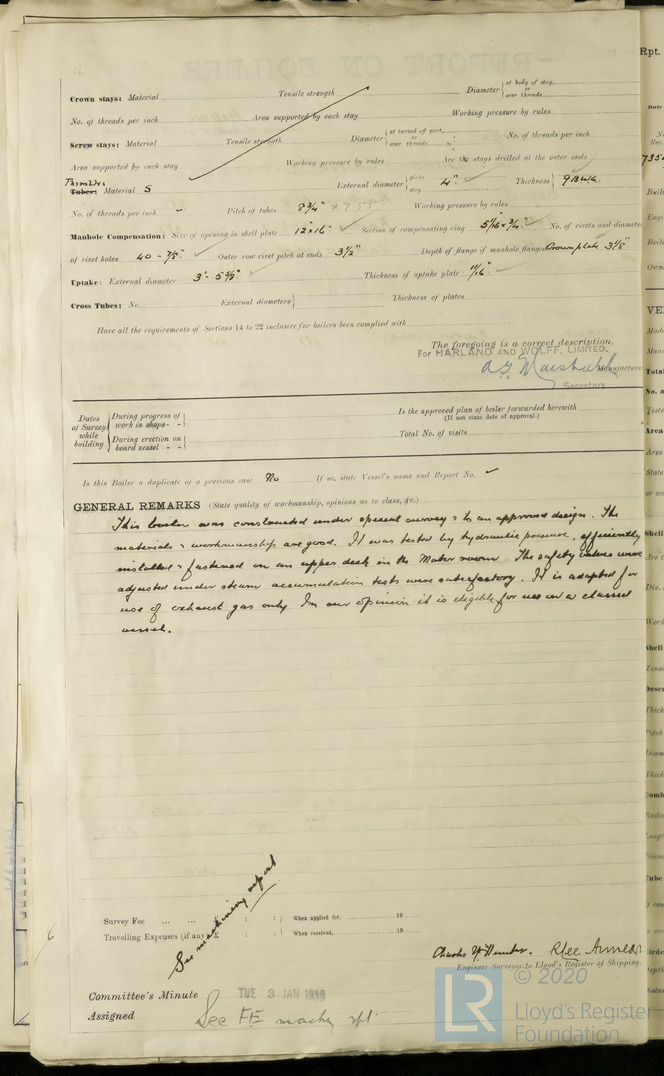 Rpt.
Crown stays: Material Tensile strength Diameter at body of stay, or over threads
No. of threads per inch Area supported by each stay Working pressure by rules
Screw stays: Material Tensile strength Diameter at turned off part, or over threads No. of threads per inch
Area supported by each stay Working pressure by rules Are the stays drilled at the outer ends
Tubes: Material S External diameter plain stay 4" Thickness 9 B.W.G.
No. of threads per inch - Pitch of tubes 8 3/4" Working pressure by rules
Manhole Compensation: Size of opening in shell plate 12"x16" Section of compensating ring No. of rivets and diameter
of rivet holes 40 - 7/8" Outer row rivet pitch at ends 3 1/2" Depth of flange if manhole flanged Crown plate 3 1/2"
Uptake: External diameter Thickness of uptake plate 11/16"
Cross Tubes: No. External diameters Thickness of plates
Have all the requirements of Sections 14 to 22 inclusive for boilers been complied with
The foregoing is a correct description,
For HARLAND AND WOLFF, LIMITED.
Manufacturer
Secretary
Dates of Survey while building During progress of work in shops - - During erection on board vessel - -
Is the approved plan of boiler forwarded herewith
(If not state date of approval.)
Total No. of visits
Is this Boiler a duplicate of a previous case No If so, state Vessel's name and Report No.
GENERAL REMARKS (State quality of workmanship, opinions as to class, &c.)
This boiler was constructed under special survey & to an approved design. The
materials & workmanship are good. It was tested by hydraulic pressure, efficiently
installed & fastened on an upper deck in the Motor room. The safety valves were
adjusted under steam accumulation tests were satisfactory. It is adapted for
use of exhaust gas only In our opinion it is eligible for use in a classed
vessel.
See machinery report
Survey Fee ... ... : : When applied for, 19
Travelling Expenses (if any) £ : : When received, 19
Engineer Surveyor to Lloyd's Register of Shipping.
Committee's Minute TUE 3 JAN
Assigned See FE machy rpt
LR
© 2020
Lloyd's Register
Foundation